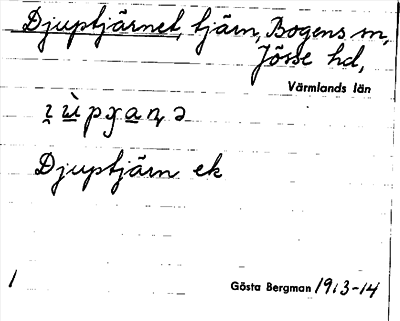 Djuptjärnet, tjärn, Bogens sn,
Jösse hd,
Värmlands län
Djuptjärn ek
1 Gösta Bergman 1913-14